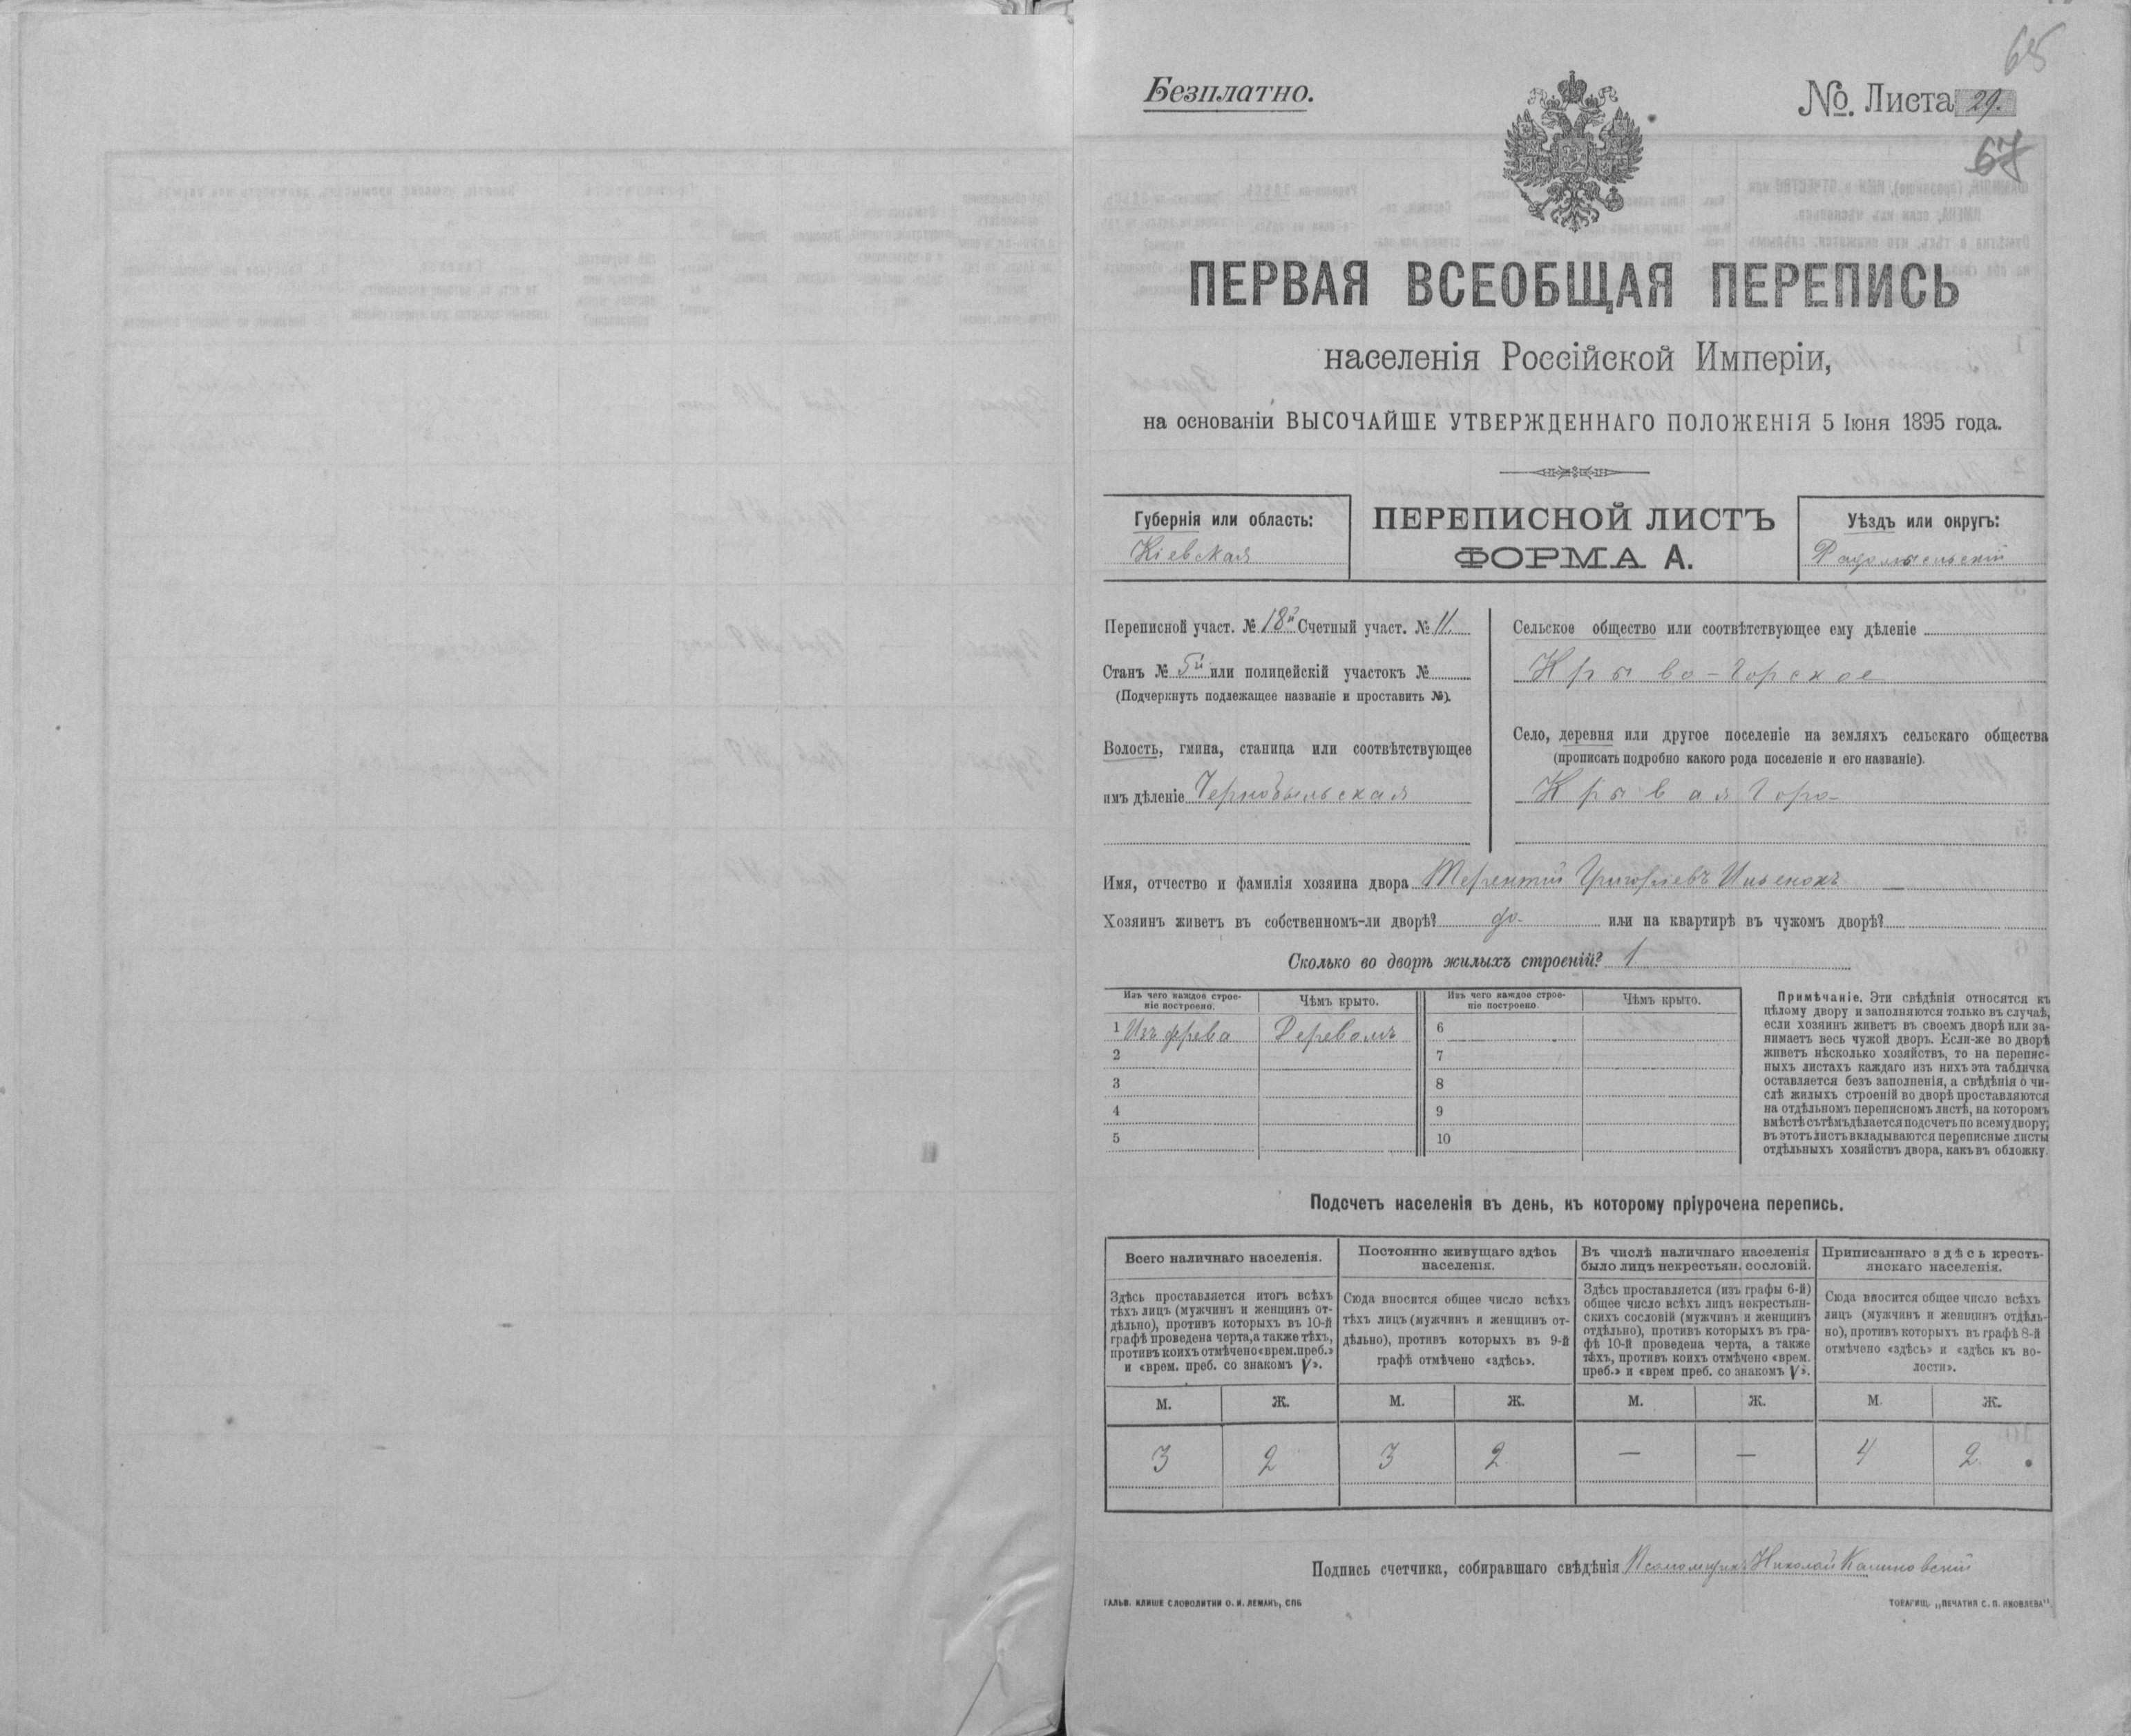 65
Безплатно.
№. Листа 29.
67
ПЕРВАЯ ВСЕОБЩАЯ ПЕРЕПИСЬ
населенія Россійской Имперіи,
на основаніи ВЫСОЧАЙШЕ УТВЕРЖДЕННАГО ПОЛОЖЕНІЯ 5 Іюня 1895 года.
Губернія или область:
Кіевская
ПЕРЕПИСНОЙ ЛИСТЪ
ФОРМА А.
Уѣздъ или округъ:
Радомысльскій
Переписной участ. № 18й Счетный участ. № 11.
Станъ № 5й или полицейскій участокъ №
(Подчеркнуть подлежащее названіе и проставить №).
Волость, гмина, станица или соотвѣтствующее
имъ дѣленіе Чернобыльская
Сельское общество или соотвѣтствующее ему дѣленіе
Крыво-Горское
Село, деревня или другое поселеніе на земляхъ сельскаго общества
(прописать подробно какого рода поселеніе и его названіе).
Крывая Гора
Имя, отчество и фамилія хозяина двора Терентій Григоріевъ
Хозяинъ живетъ въ собственномъ-ли дворѣ? да. или на квартирѣ въ чужомъ дворѣ?
Сколько во дворѣ жилыхъ строеній? 1
Изъ чего каждое строе-
ніе построено.
Чѣмъ крыто.
Изъ чего каждое строе-
ніе построено.
Чѣмъ крыто.
1 Изъ дерева Деревомъ 6
2 7
3 8
4 9
5 10
Примѣчаніе. Эти свѣдѣнія относятся къ
цѣлому двору и заполняются только въ случаѣ,
если хозяинъ живетъ въ своемъ дворѣ или за-
нимаетъ весь чужой дворъ. Если-же во дворѣ
живетъ нѣсколько хозяйствъ, то на перепис-
ныхъ листахъ каждаго изъ нихъ эта табличка
оставляется безъ заполненія, а свѣдѣнія о чи-
слѣ жилыхъ строеній во дворѣ проставляются
на отдѣльномъ переписномъ листѣ, на которомъ
вмѣстѣ съ тѣмъ дѣлается подсчетъ по всему двору;
въ этотъ листъ вкладываются переписные листы
отдѣльныхъ хозяйствъ двора, какъ въ обложку.
Подсчетъ населенія въ день, къ которому пріурочена перепись.
Всего наличнаго населенія.
Здѣсь проставляется итогъ всѣхъ
тѣхъ лицъ (мужчинъ и женщинъ от-
дѣльно), противъ которыхъ въ 10-й
графѣ проведена черта, а также тѣхъ,
противъ коихъ отмѣчено «врем. преб.»
и «врем. преб. со знакомъ V».
Постоянно живущаго здѣсь
населенія.
Сюда вносится общее число всѣхъ
тѣхъ лицъ (мужчинъ и женщинъ от-
дѣльно), противъ которыхъ въ 9-й
графѣ отмѣчено «здѣсь».
Въ числѣ наличнаго населенія
было лицъ некрестьян. сословій.
Здѣсь проставляется (изъ графы 6-й)
общее число всѣхъ лицъ некрестьян-
скихъ сословій (мужчинъ и женщинъ
отдѣльно), противъ которыхъ въ гра-
фѣ 10-й проведена черта, а также
тѣхъ, противъ коихъ отмѣчено «врем.
преб.» и «врем преб. со знакомъ V».
Приписаннаго здѣсь кресть-
янскаго населенія.
Сюда вносится общее число всѣхъ
лицъ (мужчинъ и женщинъ отдѣль-
но), противъ которыхъ въ графѣ 8-й
отмѣчено «здѣсь» и «здѣсь къ во-
лости».
М. Ж. М. Ж. М. Ж. М. Ж.
3 2 3 2 — — 4 2.
Подпись счетчика, собиравшаго свѣдѣнія Псаломщикъ Николай Калиновскій
ГАЛЬВ. КЛИШЕ СЛОВОЛИТНИ О. И. ЛЕМАНЪ, СПБ
ТОВАРИЩ. „ПЕЧАТНЯ С. П. ЯКОВЛЕВА".